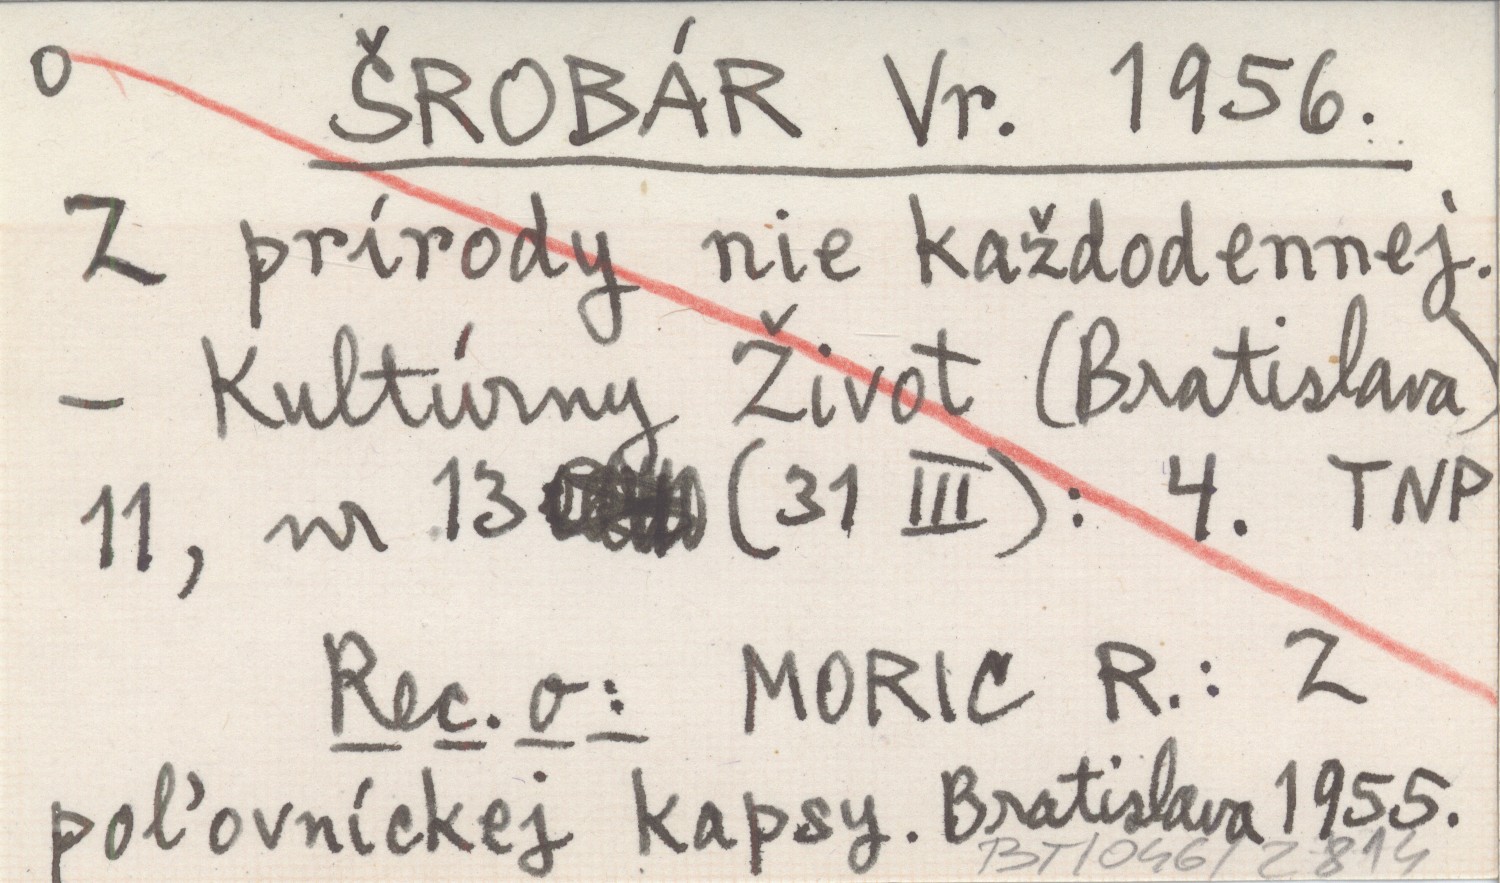 o ŠROBÁR Vr. 1956.
Z prírody nie každodennej.
– Kultúrny Život (Bratislava)
11, nr 13 (31 III): 4. TNP
Rec. o: MORIC R.: Z
poľovníckej kapsy. Bratislava 1955.
BT/046/2814